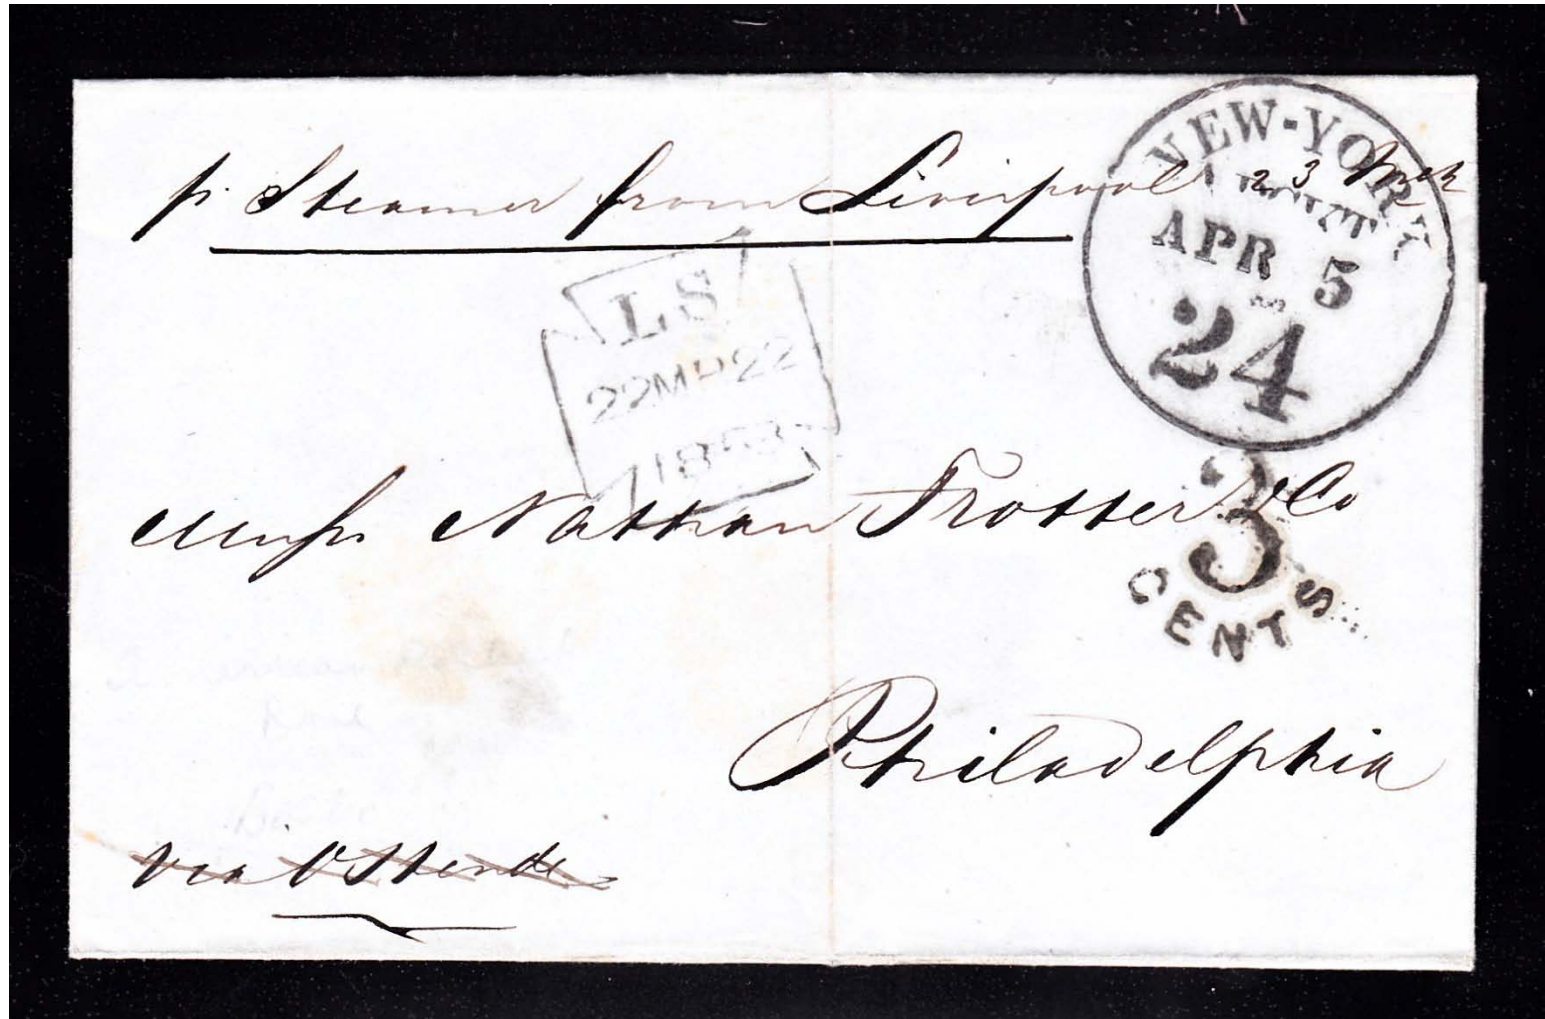 p. Steamer from Liverpool 23 Mch
NEW-YORK
APR 5
24
LS
22MR22
1853
Messrs Nathan Trotter & Co
3
CENTS
Philadelphia
via Ostende